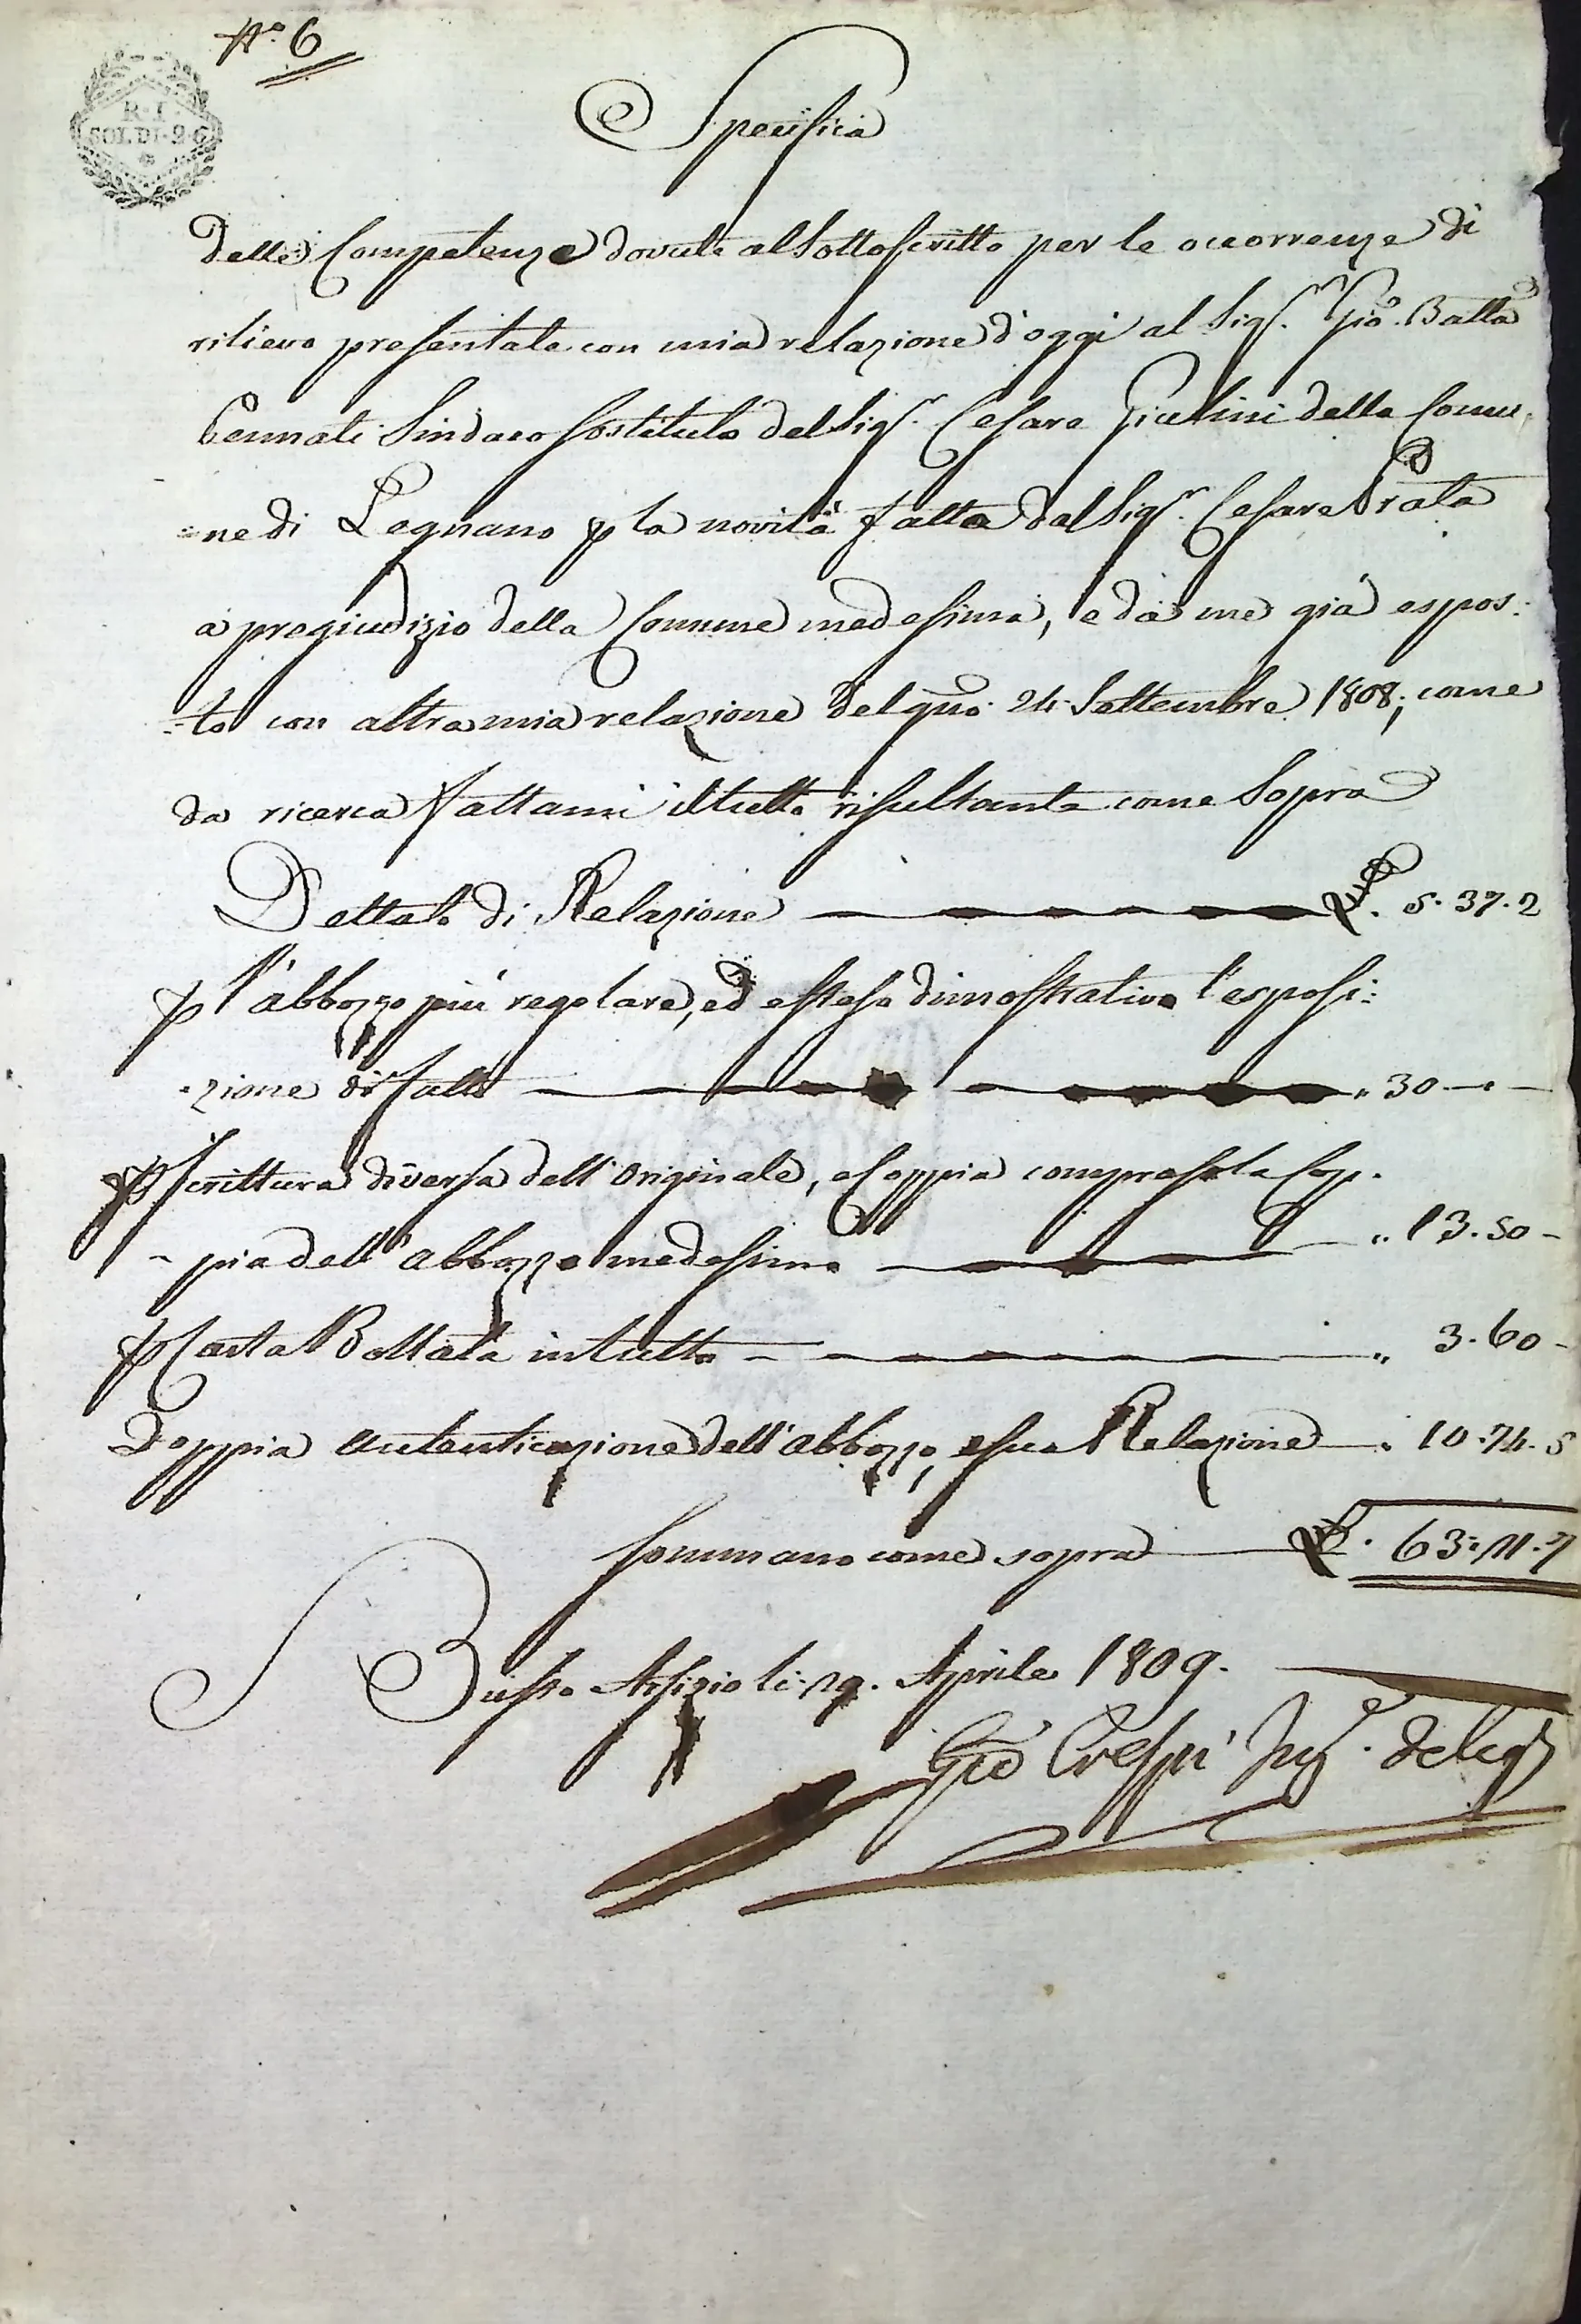 N.º 6
R. I.
SOLDI. 26
Specifica
delle Competenze dovute al Sottoscritto per le occorrenze di
rilievo presentate con mia relazione d'oggi al Sigr. Gio. Batta
Sindaco Sostituto del Sigr. Cesare Giulini della Comu,
=ne di Legnano p la novità fatta dal Sigr. Cesare Prata
a pregiudizio della Comune medesima, e da me già espos:
=to con altra mia relazione del gno. 24. Settembre 1808; come
da ricerca fattami il tutto risultante come Sopra
Dettato di Relazione £. 5. 37. 2
p l'abbozzo più regolare, ed esteso dimostrativo l'esposi:
=zione di fatto „ 30 — . —
p Scrittura diversa dell'Originale, e Coppia compresa la Cop.
- pia dell'abbozzo medesimo „ 13. 50 -
p Carta Bollata in tutto „ 3. 60 -
Doppia autenticazione dell'abbozzo, e sua Relazione „ 10. 74. 5
Sommano come sopra £. 63: 11. 7
Busto Arsizio li 19. Aprile 1809.
Gio Crespi Ingr. deleg